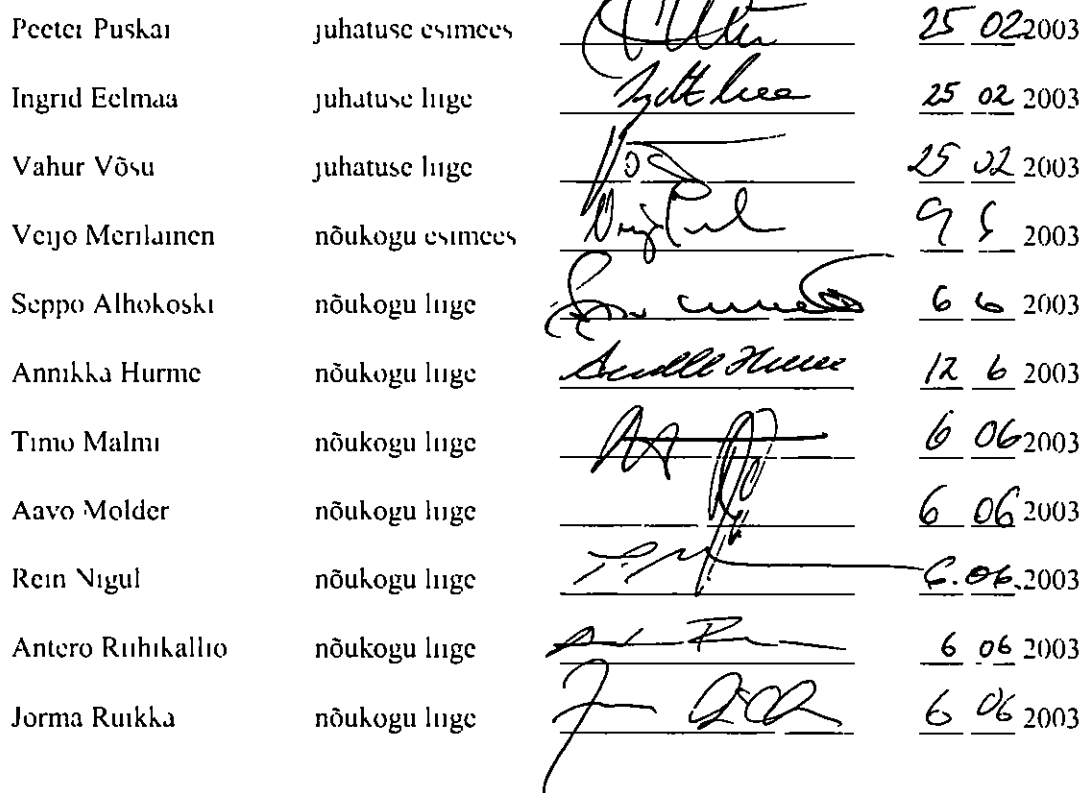 Peeter Puskar juhatuse esimees 25 02 2003
Ingrid Eelmaa juhatuse liige 25 02 2003
Vahur Võsu juhatuse liige 25 02 2003
Veijo Merilainen nõukogu esimees 2003
Seppo Alhokoski nõukogu liige 6 6 2003
Annikka Hurme nõukogu liige 12 6 2003
Timo Malmi nõukogu liige 6 06 2003
Aavo Molder nõukogu liige 6 06 2003
Rein Nigul nõukogu liige 6.06.2003
Antero Riihikallio nõukogu liige 6 06 2003
Jorma Ruikka nõukogu liige 6 06 2003